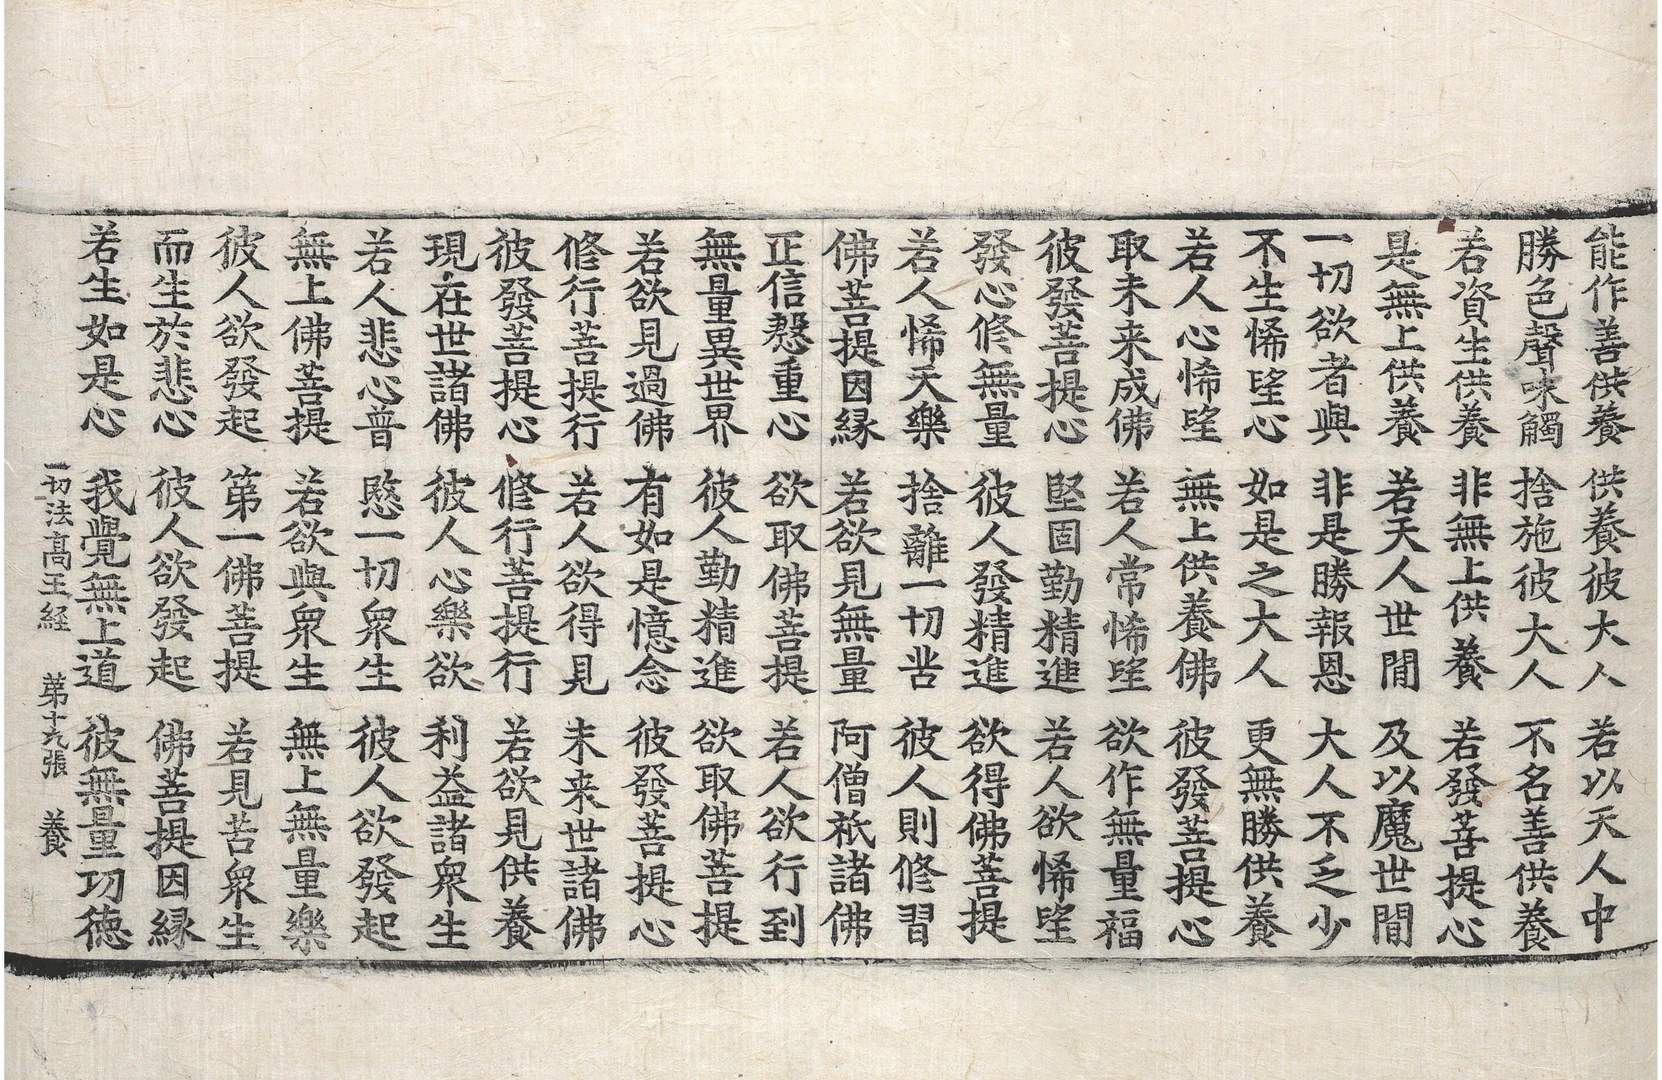 能作善供養　供養彼大人　若以天人中
勝色聲味觸　捨施彼大人　不名善供養
若資生供養　非無上供養　若發菩提心
是無上供養　若天人世閒　及以魔世閒
一切欲者與　非是勝報恩　大人不乏少
不生悕望心　如是之大人　更無勝供養
若人心悕望　無上供養佛　彼發菩提心
取未来成佛　若人常悕望　欲作無量福
彼發菩提心　堅固勤精進　若人欲悕望
發心修無量　彼人發精進　欲得佛菩提
若人悕天樂　捨離一切苦　彼人則修習
佛菩提因縁　若欲見無量　阿僧祇諸佛
正信慇重心　欲取佛菩提　若人欲行到
無量異世界　彼人勤精進　欲取佛菩提
若欲見過佛　有如是憶念　彼發菩提心
修行菩提行　若人欲得見　未来世諸佛
彼發菩提心　修行菩提行　若欲見供養
現在世諸佛　彼人心樂欲　利益諸衆生
若人悲心普　愍一切衆生　彼人欲發起
無上佛菩提　若欲與衆生　無上無量樂
彼人欲發起　第一佛菩提　若見苦衆生
而生於悲心　彼人欲發起　佛菩提因縁
若生如是心　我覺無上道　彼無量功德
一切法高王經　第十九張　養